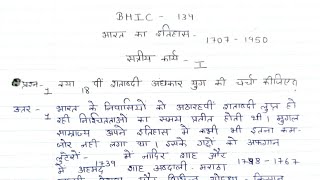 BHIC - 134
भारत का इतिहास - 1707 - 1950
सत्रीय कार्य - I
प्रश्न - 1 क्या 18 वीं शताब्दी अंधकार युग की चर्चा कीजिए?
उत्तर - 1 भारत के निवासियों को अठारहवीं शताब्दी लुप्त हो
रही निश्चितताओं का समय प्रतीत होती थी। मुगल
साम्राज्य अपने इतिहास में कभी भी इतना कम-
जोर नहीं लगा था। इसके को अफगान
लुटेरों - 1739 में नादिर शाह और 1748 - 1767
में अहमद शाह अब्दाली, मराठा